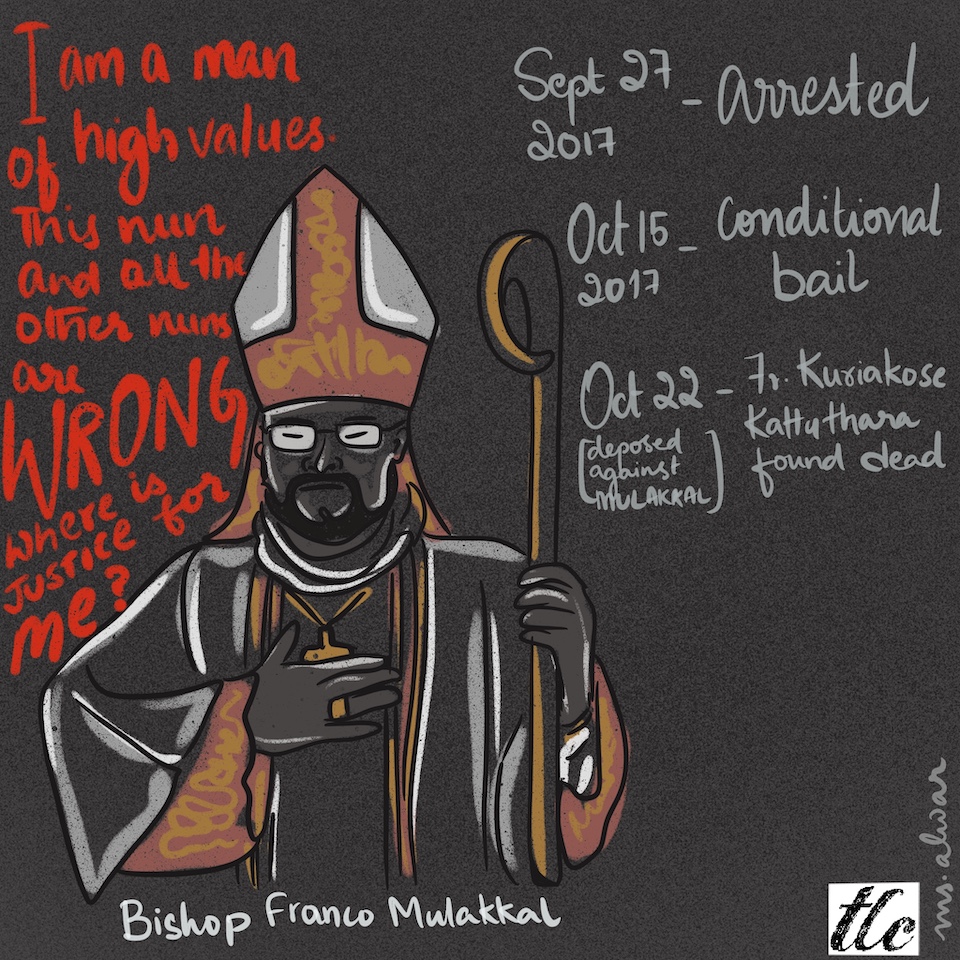 I am a man
of high values.
This nun
and all the
other nuns
are
WRONG
where is
JUSTICE for
me?
Sept 27 - arrested
2017
Oct 15 - conditional
2017 bail
Oct 22 - Fr. Kuriakose
[deposed Kattuthara
against found dead
MULAKKAL]
Bishop Franco Mulakkal
tlc
ms. alwar